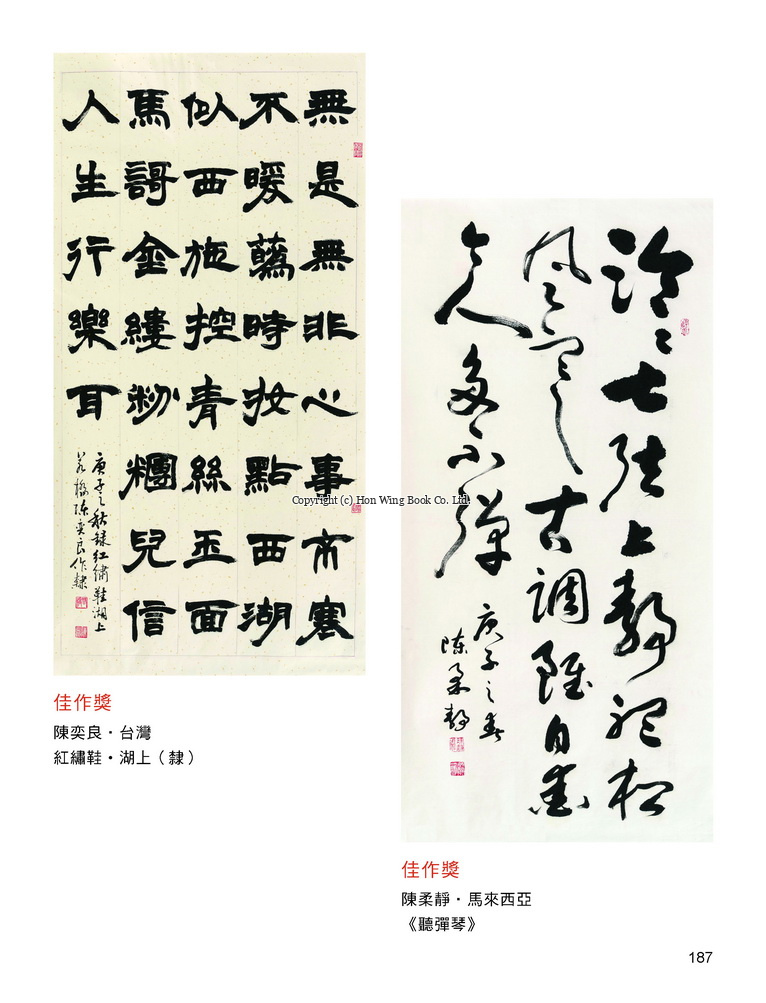 無是無非心事不寒
不暖時妝點西湖
似西施控青絲玉面
馬謌金縷粉糰兒信
人生行樂耳
庚子之秋錄紅繡鞋湖上
陳奕良作隸
佳作獎
陳奕良・台灣
紅繡鞋・湖上（隸）
泠泠七弦上靜聽松
風寒古調雖自愛
今人多不彈
庚子之春
陳柔靜
佳作獎
陳柔靜・馬來西亞
《聽彈琴》
Copyright (c) Hon Wing Book Co. Ltd.
187